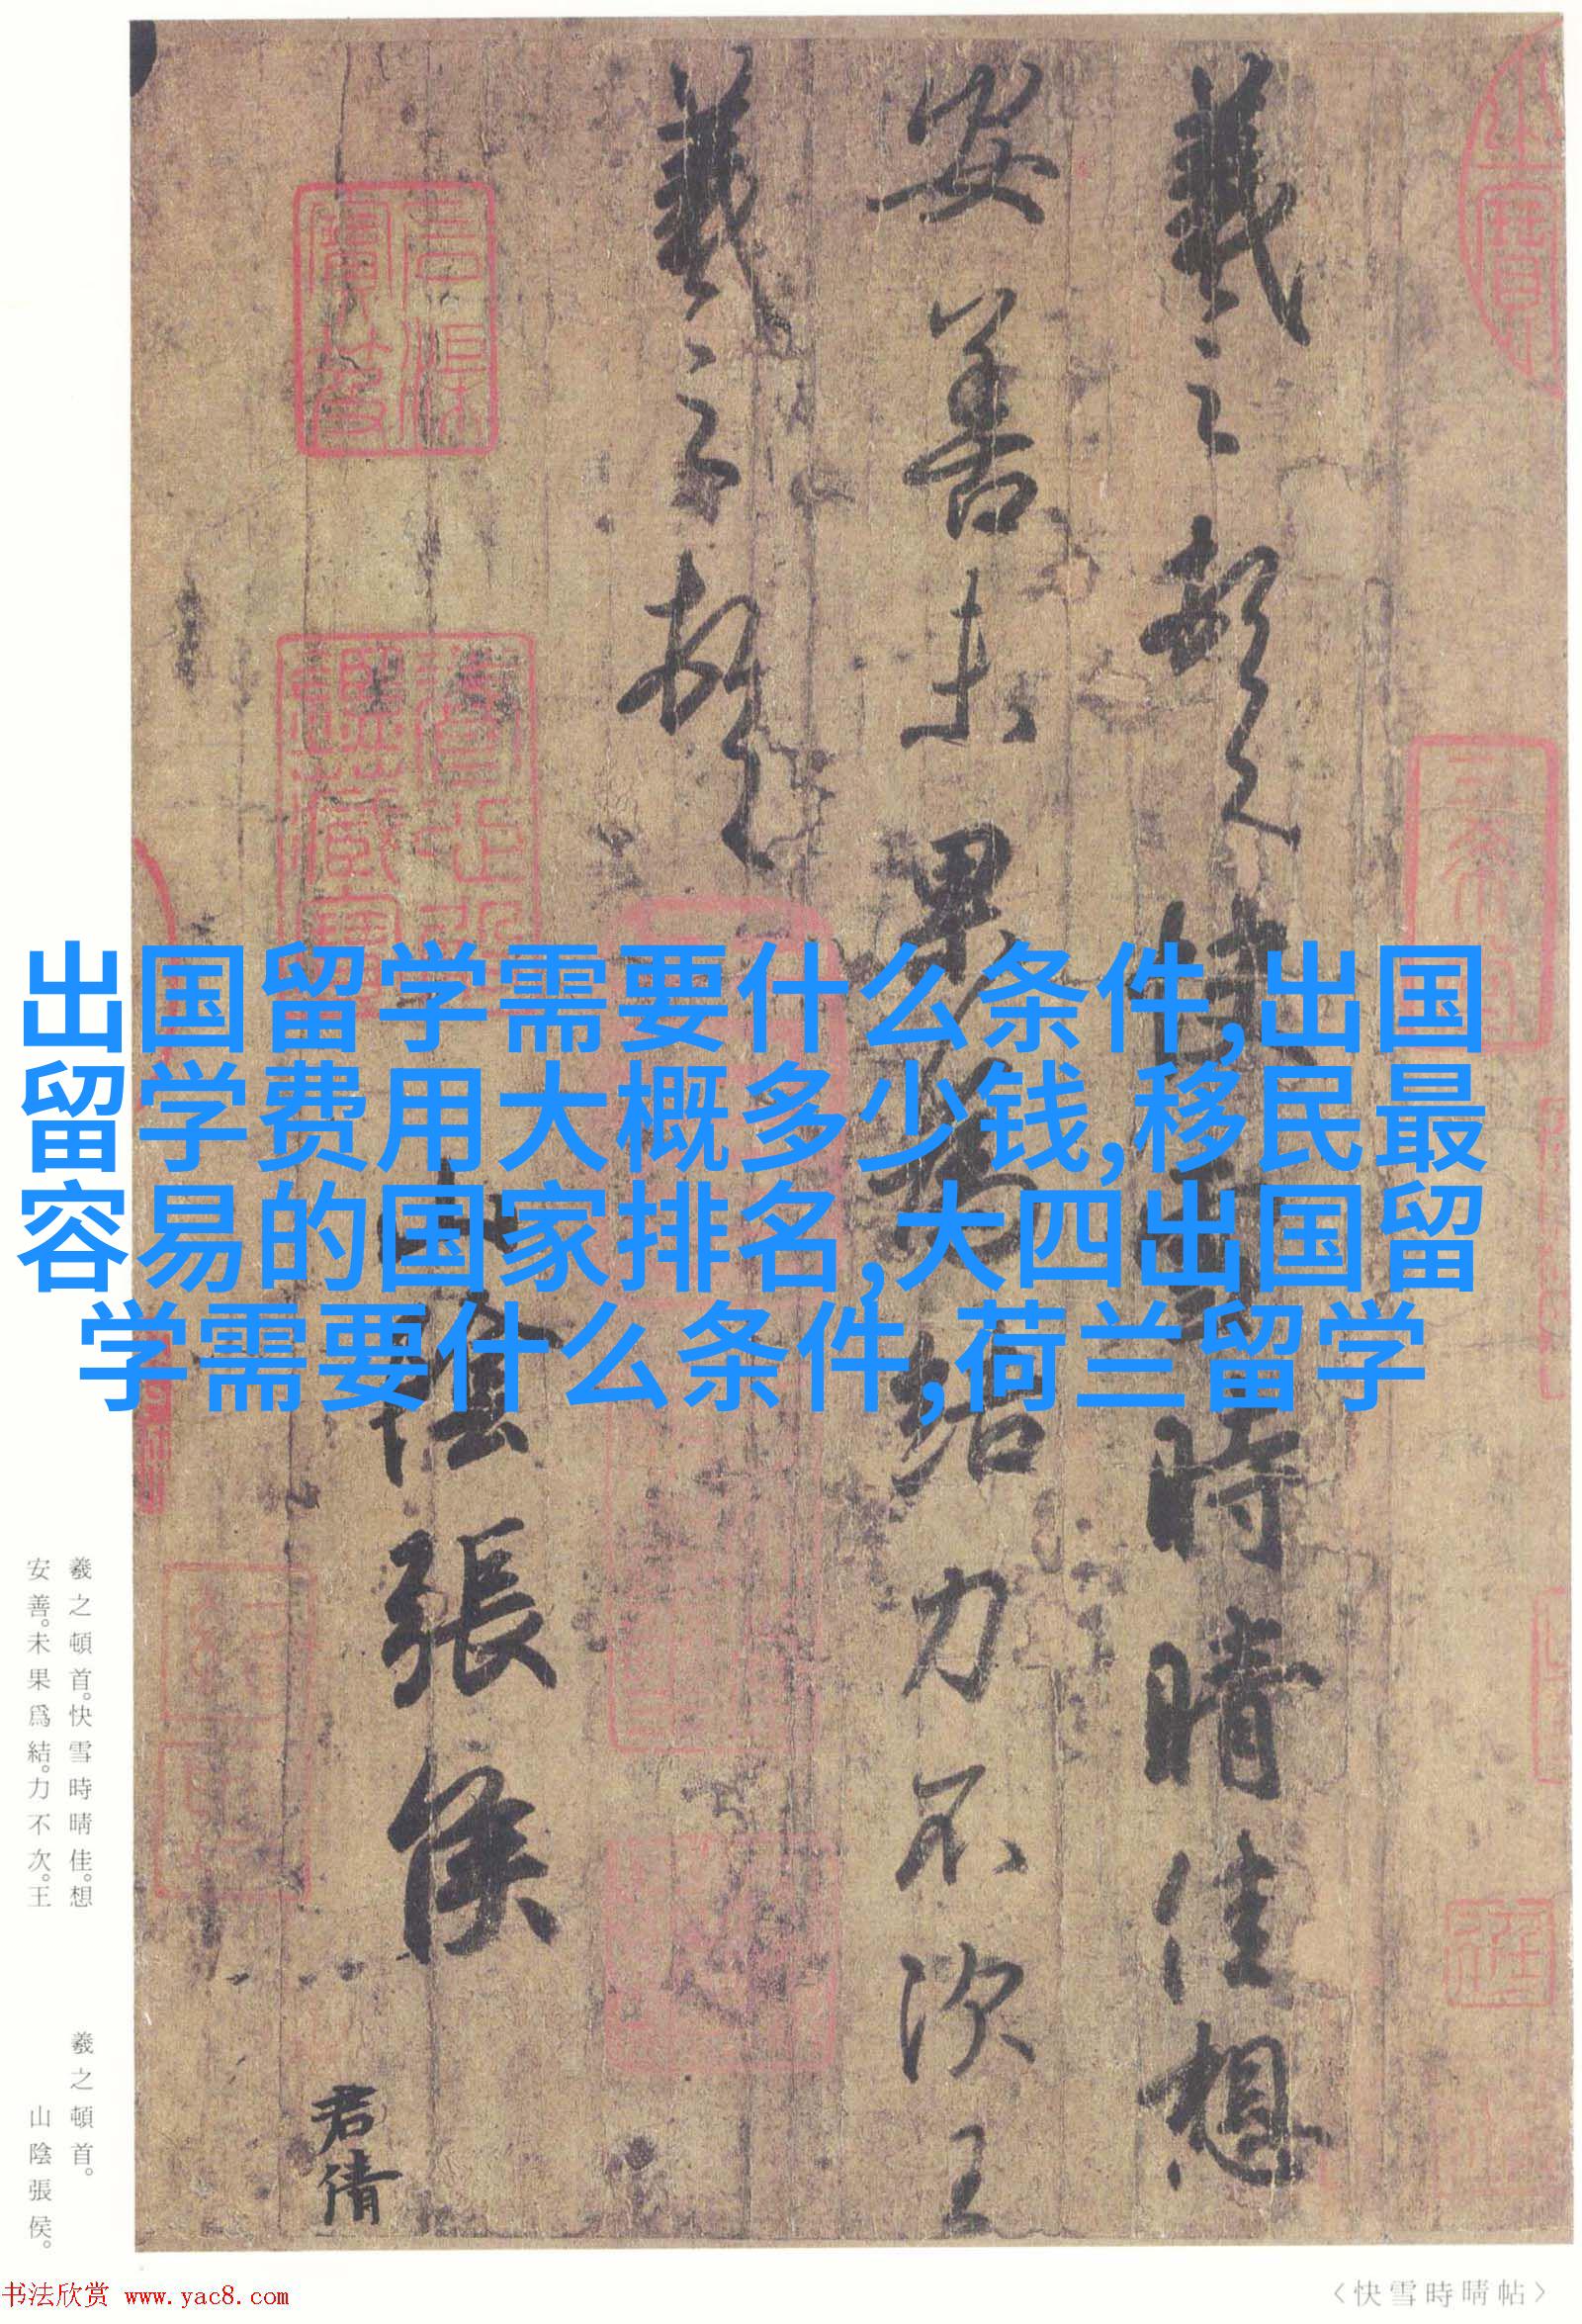 出国留学需要什么条件,出国
留学费用大概多少钱,移民最
容易的国家排名,大四出国留
学需要什么条件,荷兰留学
羲之頓首快雪時晴佳想
安善未果為結力不次王
羲之頓首
山陰張侯
君倩
羲之頓首。快雪時晴佳。想
安善。未果爲結。力不次。王
羲之頓首。
山陰張侯。
书法欣赏 www.yac8.com
〈快雪時晴帖〉